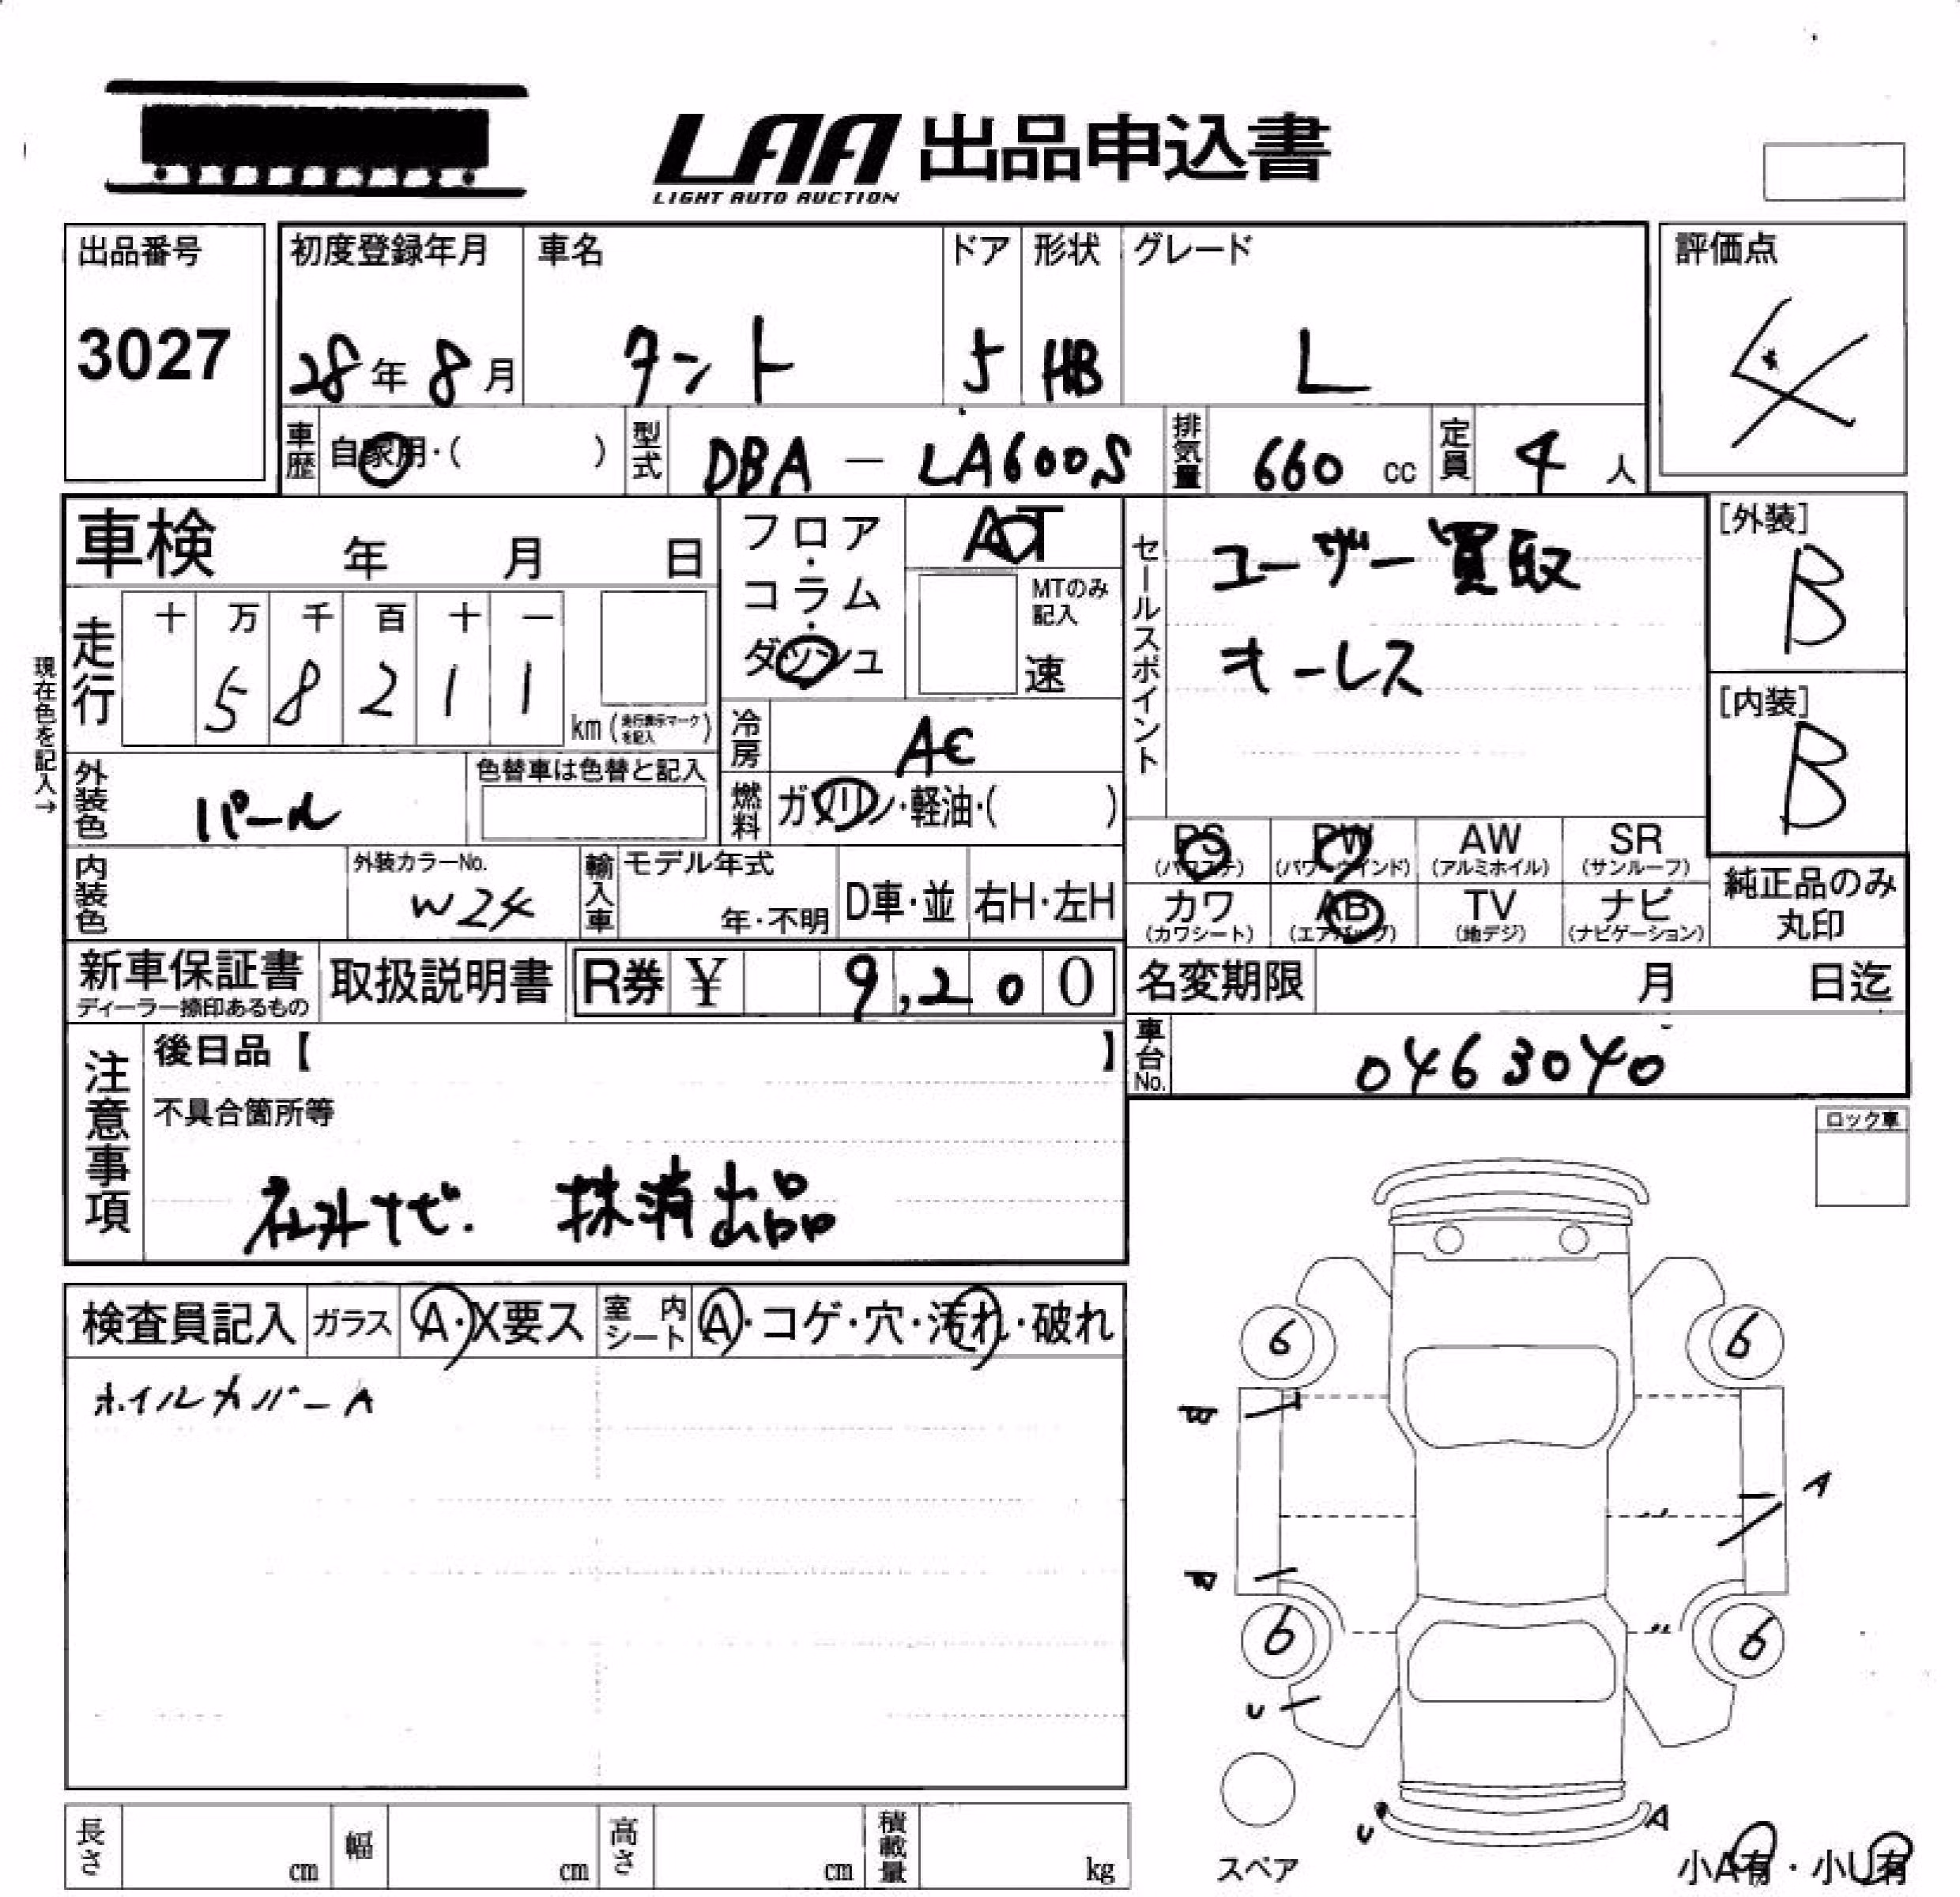 LAA 出品申込書
LIGHT AUTO AUCTION
出品番号
3027
初度登録年月
28年8月
車名
タント
ドア
5
形状
HB
グレード
L
評価点
4
車歴 自家用・( )
型式 DBA - LA600S
排気量 660 cc
定員 4 人
車検 年 月 日
フロア・コラム・ダッシュ
AT
MTのみ記入
速
セールスポイント
ユーザー買取
キーレス
[外装]
B
[内装]
B
現在色を記入→
走行
十 万 千 百 十 一
5 8 2 1 1
km (走行表示マークを記入)
冷房 AC
燃料 ガソリン・軽油・( )
外装色 パール
色替車は色替と記入
内装色
外装カラーNo.
W24
輸入車
モデル年式
年・不明
D車・並
右H・左H
PS (パワステ)
PW (パワーウインド)
AW (アルミホイル)
SR (サンルーフ)
カワ (カワシート)
AB (エアバッグ)
TV (地デジ)
ナビ (ナビゲーション)
純正品のみ
丸印
新車保証書
ディーラー捺印あるもの
取扱説明書
R券 ¥ 9,200
名変期限 月 日迄
車台No. 0463040
注意事項
後日品【 】
不具合箇所等
社外ナビ. 抹消出品
ロック車
検査員記入
ガラス A・X要ス
室内シート A・コゲ・穴・汚れ・破れ
ホイルカバーA
6
6
A
6
6
U
U
A
スペア
小A有・小U有
長さ cm
幅 cm
高さ cm
積載量 kg